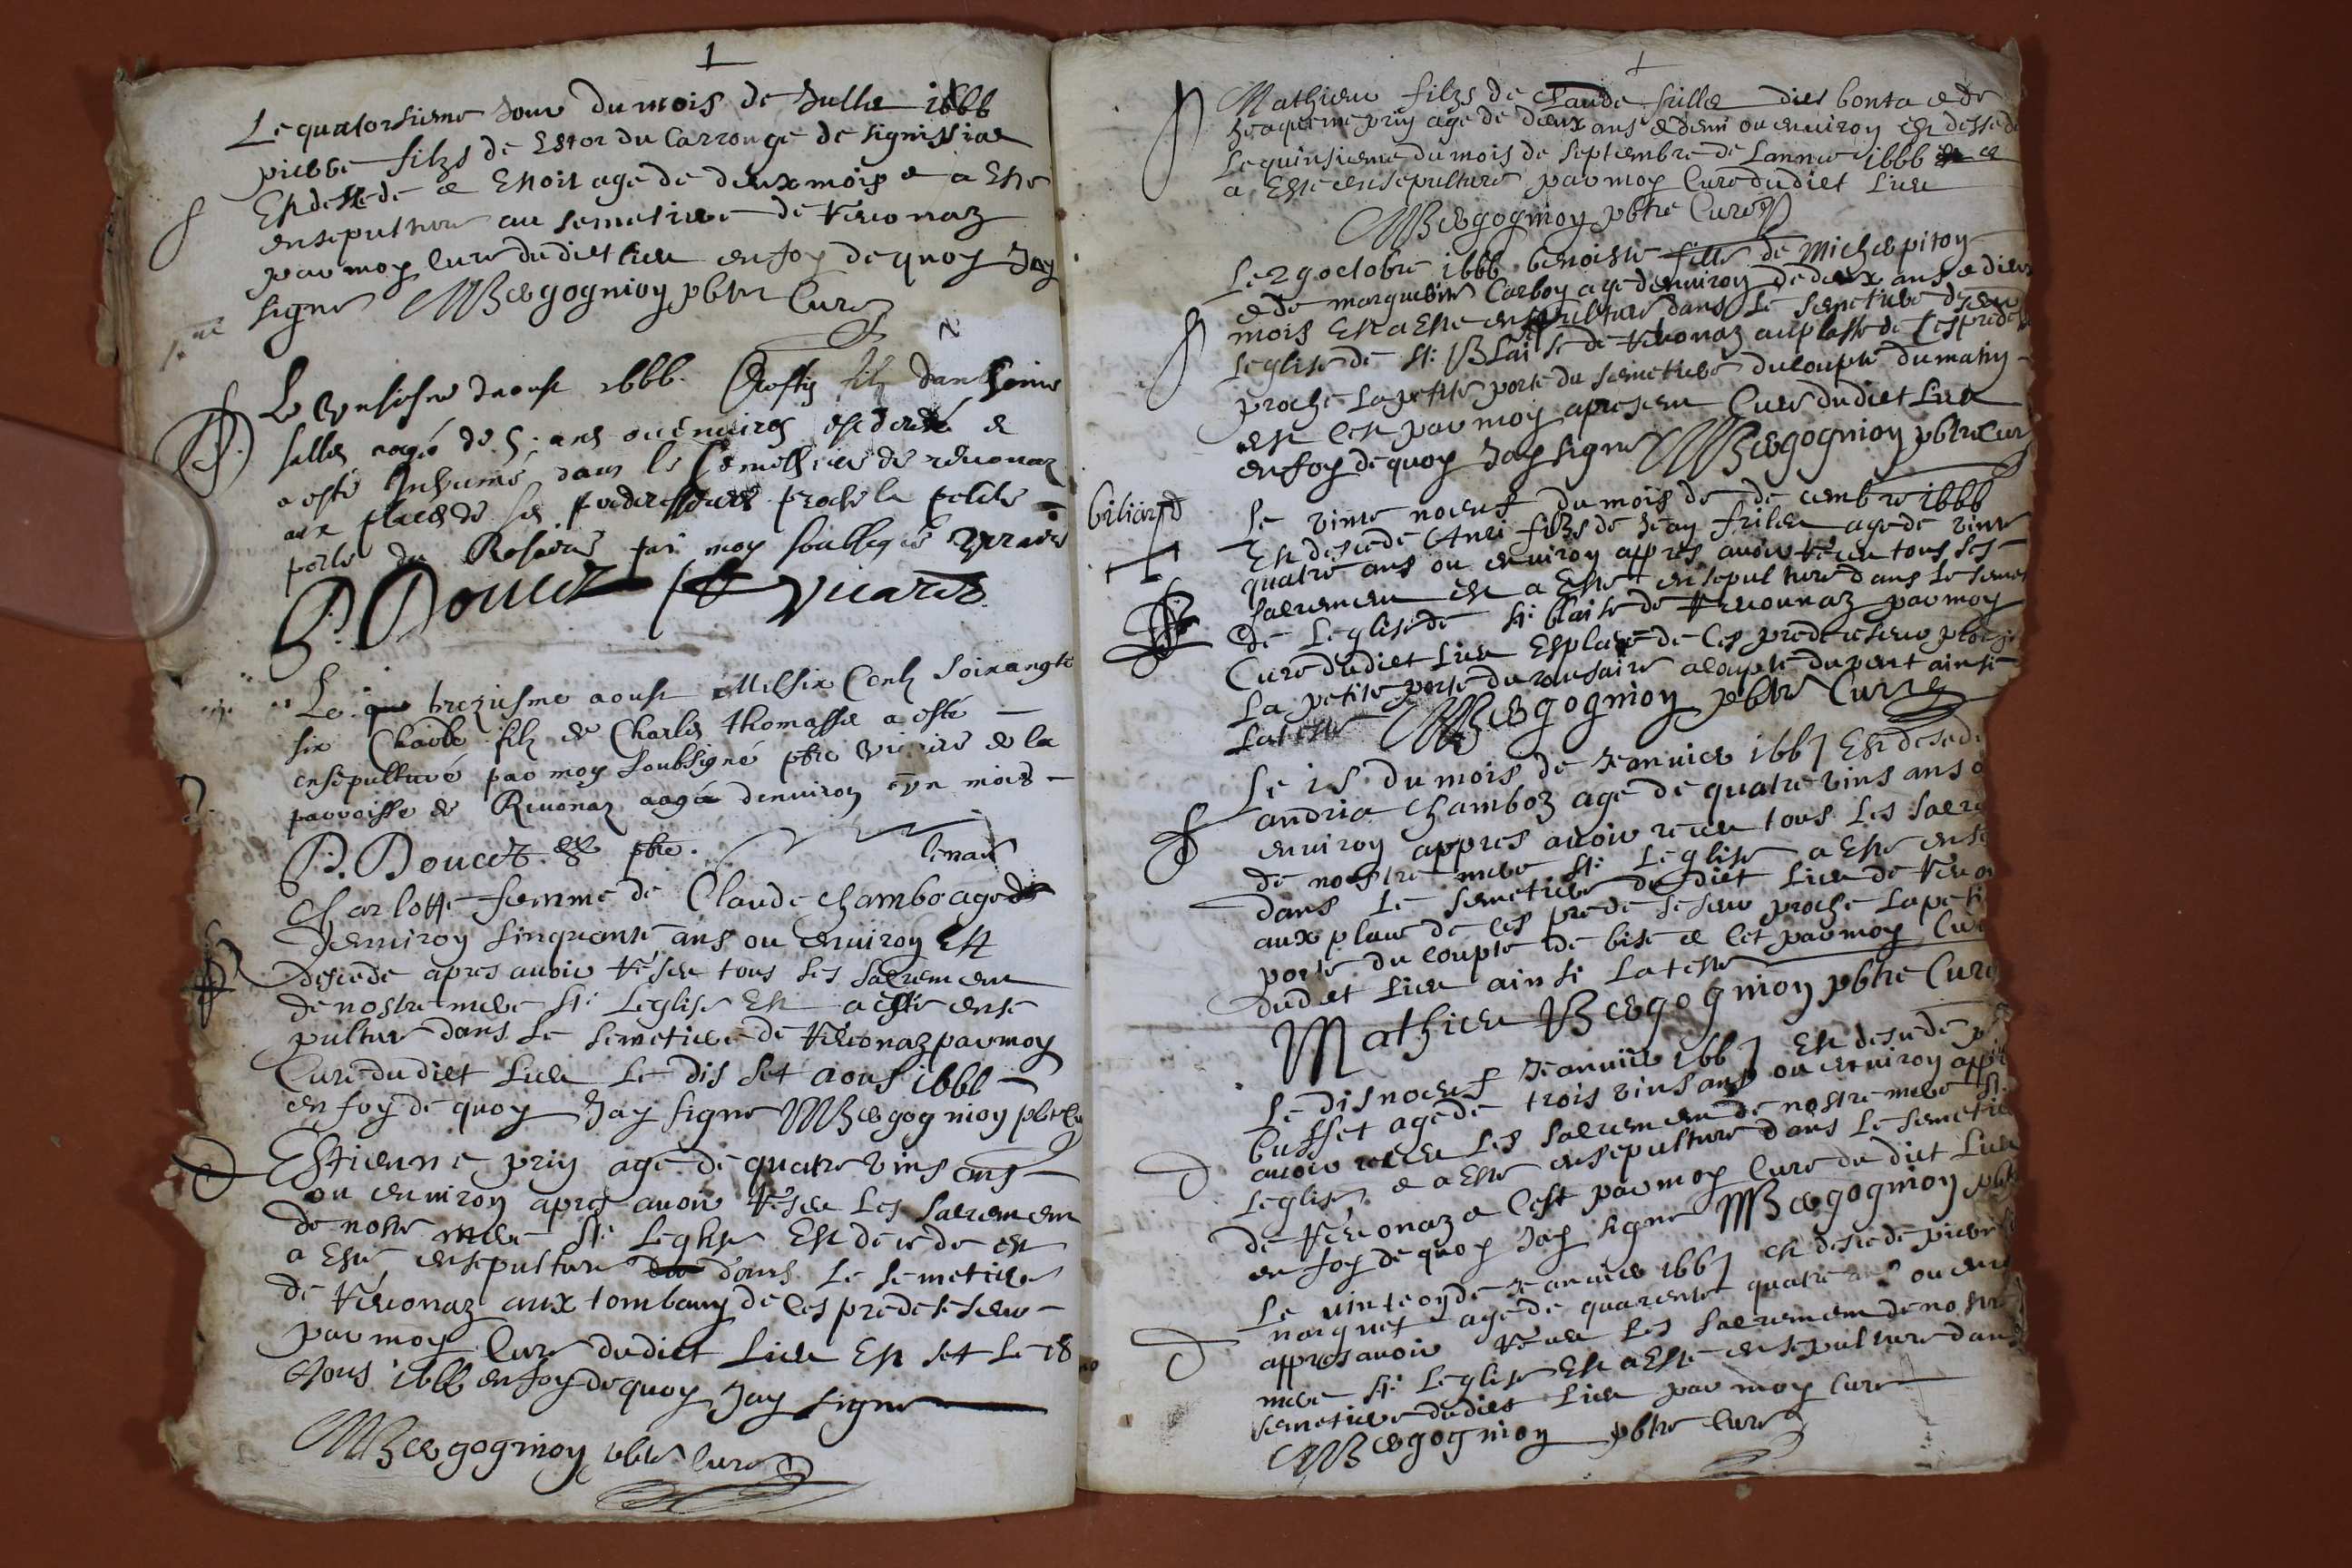 Le quatorsieme Jour du mois de Jullie 1666
pierre filzs de Estor du Carrouge de signissiae
Est dessede e Estoit age de deux mois e a Este
ensepulture au semetiere de Revonaz
par moy Cure dudict lieu en foy de quoy Jay
signe MBergognion pbtre Cure
Le unsiesme daoust 1666. filz danthoine
aagé de 5 ans ou environ est decedé et
a esté Inhumé dans le Semethiere de revonaz
aux places de ses predecesseurs proche la petite
porte du Rosaire par moy soubsigné vicaire
P. Doucet vicaire
Le treziesme aoust Mil six Centz soixangte
six Claude filz de Charles thomasse a esté
ensépulturé par moy soubsigné pbre vicaire de la
parroisse de Revonaz aagé denviron un mois
P. Doucet pbre.
Charlotte femme de Claude chambo agede
denviron sinquante ans ou environ Est
desede apres avoir reseu tous les sacremens
de nostre mere Ste Leglise Est a este ense
pulture dans Le semetiere de Reveonaz par moy
Cure dudict Lieu Le dis set aoust 1666
en foy de quoy Jay signe MBergognion pbtre
Estienne prin age de quatre vins ans
ou environ apres avoir reseu Les sacremens
de nostre mere Ste Leglise Est decede est
a Este ensepulture dans Le semetiere
de Reveonaz aux tombaux de ses predeseseurs
par moy Cure dudict Lieu Est set Le 18
Aoust 1666 en foy de quoy Jay signe
MBergognion pbtre Cure
Mathieu filzs de Claude dict bonta e de
Jeaqueme prin age de deux ans e demi ou environ Est dessede
Le quinsieme du mois de septembre de Lannee 1666 e
a Este ensepulture par moy Cure dudict Lieu
MBergognion pbtre Cure
Le 29 octobre 1666 benoiste fille de Michel piton
e de marguerite Carbon age denviron de deux ans e dieu
mois Est a Este ensepulture dans Le semetiere de
Leglise de St Blaise de Reveonaz au plasse de ses predes
proche La petite porte du semetiere du coupte du matin
est cest par moy apresent Cure dudict Lieu
en foy de quoy Jay signe MBergognion pbtre Cur
biliard
Le vinte noeuf du mois de decembre 1666
Est desede Anri filzs de Jean age de vinte
quatre ans ou environ appres avoir receu tous ses
sacremens est a Este ensepulture dans Le seme
de Leglise de St blaise de Reveonnaz par moy
Cure dudict Lieu Esplace de ses predeseseurs proche
La petite porte du rousaire a coupte du vent ainsi
Lateste MBergognion pbtre Cure
Le 15 du mois de Jeanvier 1667 Est desede
andria Chamboz age de quatre vins ans o
environ appres avoir receu tous Les sacre
de nostre mere Ste Leglise a Este ense
dans Le semetiere dudict Lieu de Reveo
aux place de ses predeseseurs proche La peti
porte du coupte de bise e cet par moy Cure
dudict Lieu ainsi Lateste
Mathieu Bergognion pbtre Cure
Le disnoeuf Jeanvier 1667 Est desede
buffet age de trois vins ans ou environ appr
avoir receu Les sacremens de nostre mere Ste
Leglise e a Este ensepulture dans Le semetie
de Reveonaz e Cest par moy Cure dudict Lieu
en foy de quoy Jay signe MBergognion pbt
Le vinte on de Jeanvier 1667 est desede pierre
age de quarente quatre ans ou envi
appres avoir receu Les sacremens de nostre
mere Ste Leglise Est a Este ensepulture dans
semetiere dudict Lieu par moy Cure
MBergognion pbtre Cure